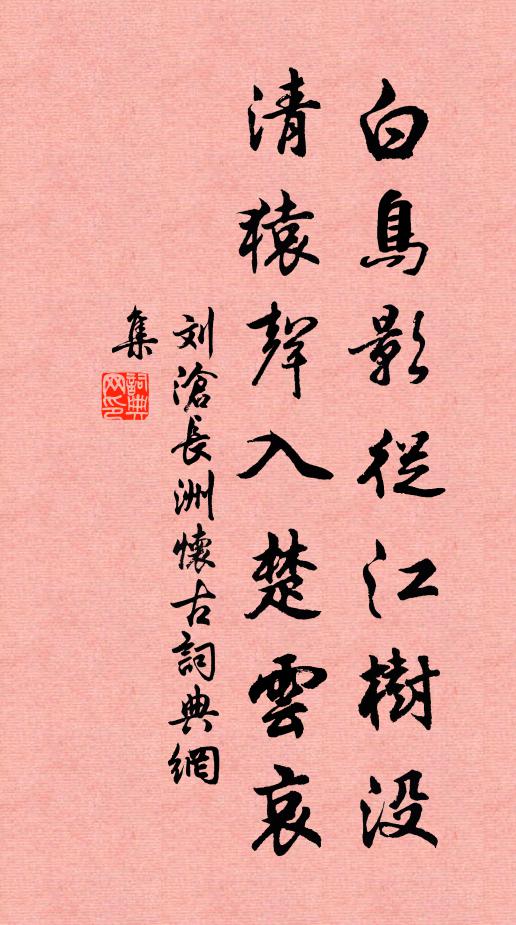 白鳥影從江樹没
清猿聲入楚雲哀
刘滄長洲懷古詞典網
集
詞典网印